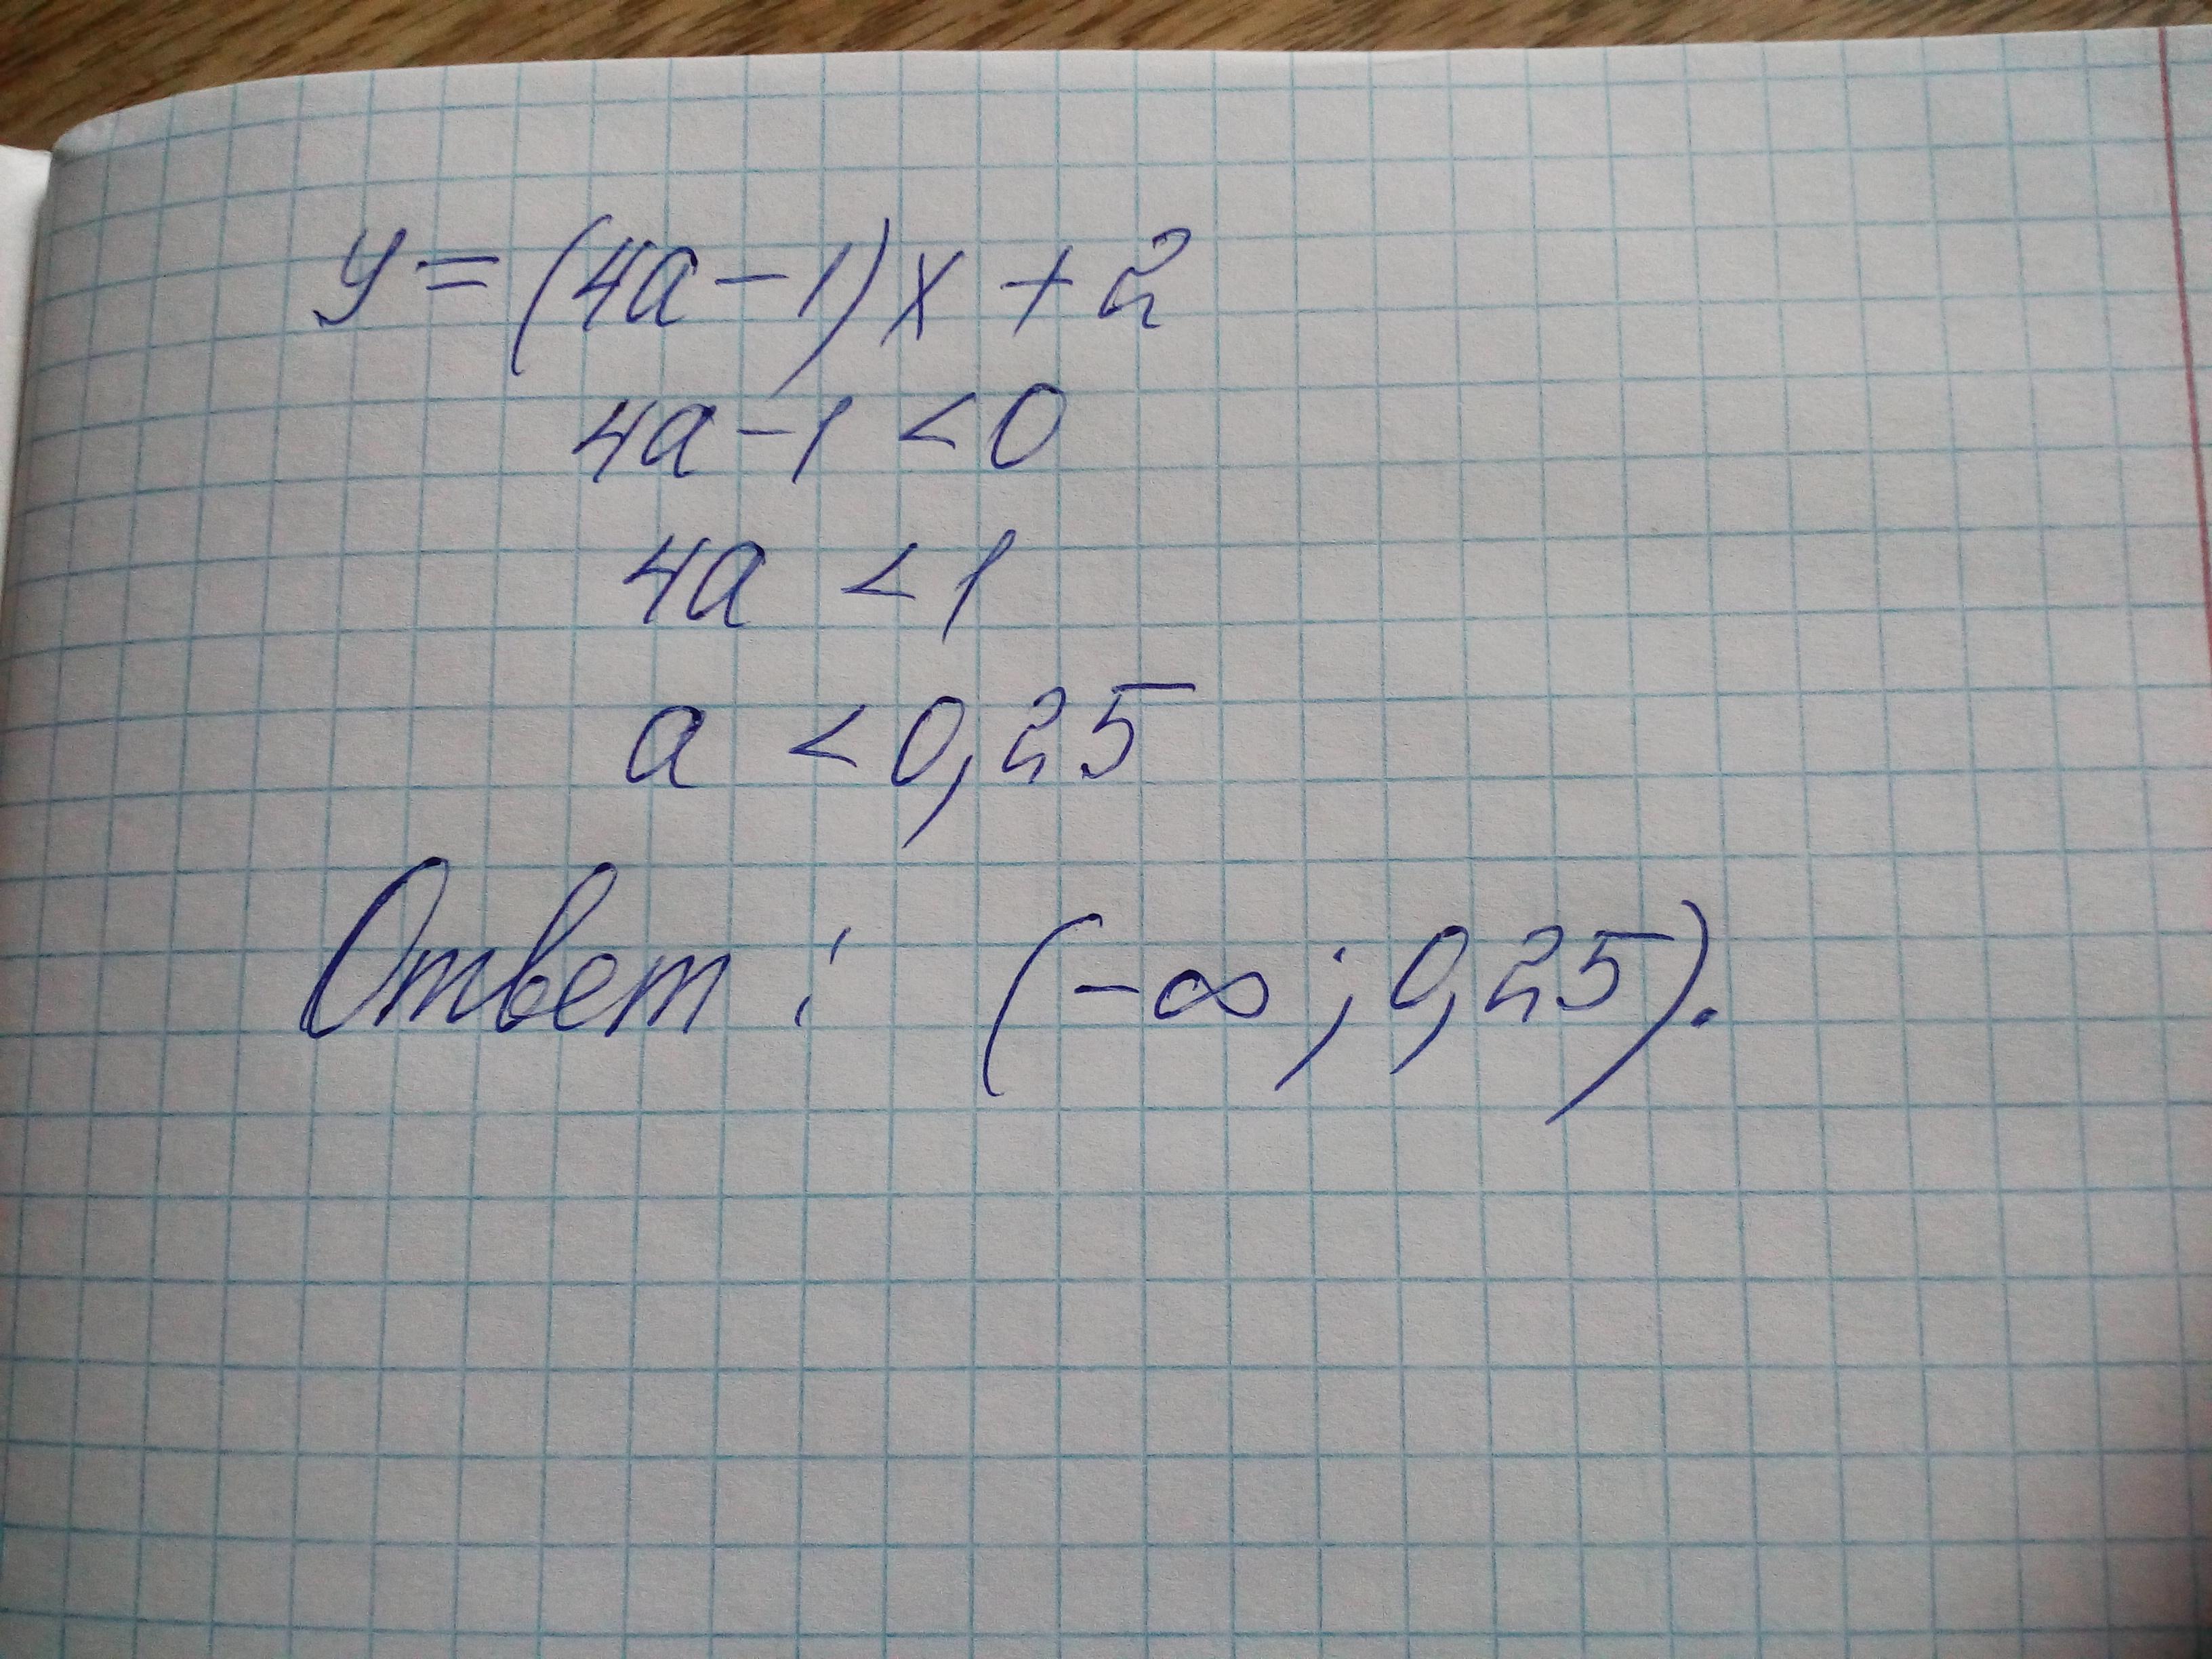 y = (4a - 1)x + 2
4a - 1 < 0
4a < 1
a < 0,25
Ответ: (-∞; 0,25).